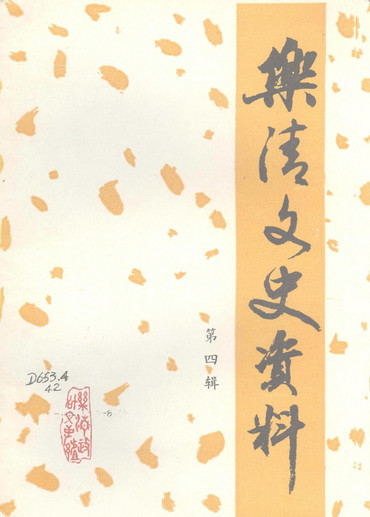 樂清文史资料
第四辑
D653.4
42